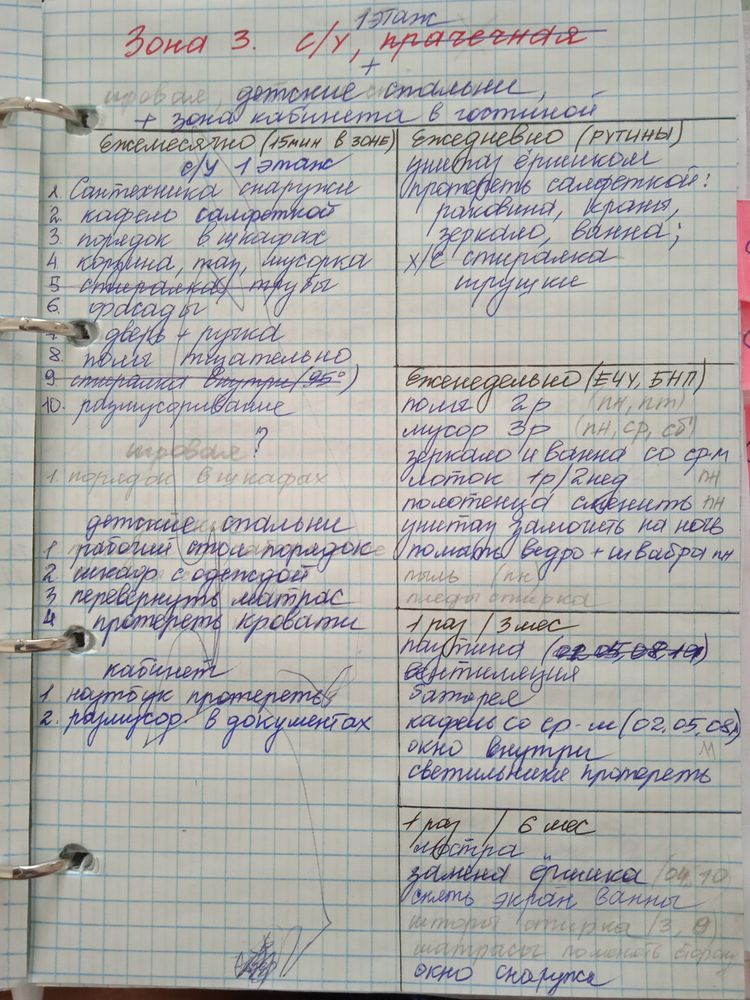 1 этаж
Зона 3. с/у, прачечная
+
игровая, детские спальни,
+ зона кабинета в гостиной
Ежемесячно (15мин в зоне)
с/у 1 этаж
1. Сантехника снаружи
2. кафель салфеткой
3. порядок в шкафах
4. корзина, таз, мусорка
5 стиралка, трубы
6. фасады
7 дверь + ручка
8. полы тщательно
9 стиралка внутри (95°)
10. размусоривание
?
игровая
1. порядок в шкафах
детские спальни
1 рабочий стол порядок
2 шкаф с одеждой
3 перевернуть матрас
4 протереть кровати
кабинет
1 ноутбук протереть
2. размусор в документах
Ежедневно (рутины)
унитаз ёршиком
протереть салфеткой:
раковина, краны,
зеркало, ванна;
х/с стиралка
трущики
Еженедельно (ЕЧУ, БНП)
полы 2р (пн, пт)
мусор 3р (пн, ср, сб)
зеркало и ванна со ср-м
лоток 1р/2нед пн
полотенца сменить пн
унитаз замочить на ночь
помыть ведро + швабры пн
пыль (пн
пледы стирка
1 раз / 3 мес
паутина (02, 05, 08, 11)
вентиляция
батарея
кафель со ср-м (02, 05, 08,
окно внутри
светильники протереть
1 раз / 6 мес
люстра
замена ёршика (04, 10
снять экран ванны
шторы стирка (3, 9)
матрасы поменять сторону
окно снаружи